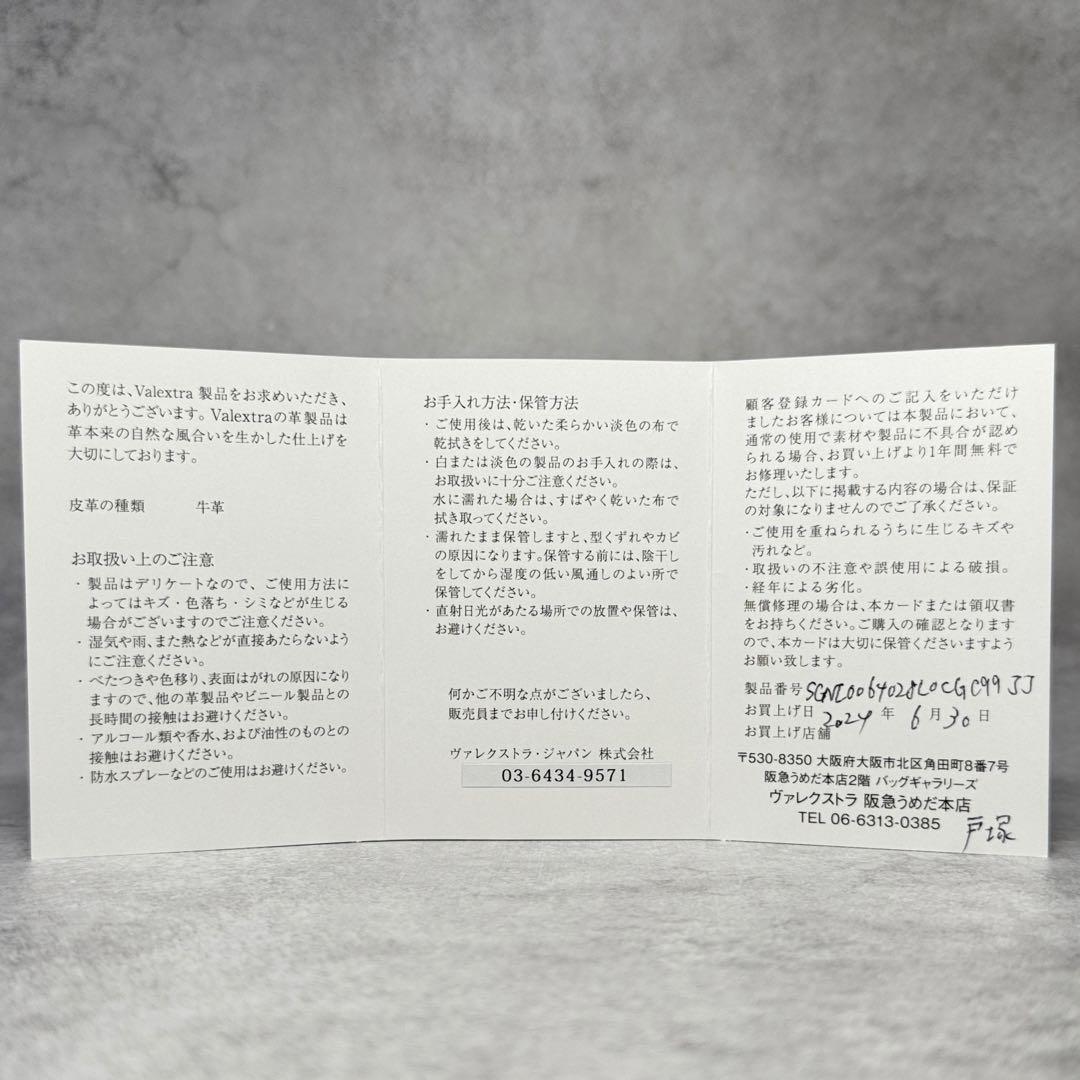 この度は、Valextra 製品をお求めいただき、
ありがとうございます。Valextraの革製品は
革本来の自然な風合いを生かした仕上げを
大切にしております。
皮革の種類 牛革
お取扱い上のご注意
・製品はデリケートなので、ご使用方法に
よってはキズ・色落ち・シミなどが生じる
場合がございますのでご注意ください。
・湿気や雨、また熱などが直接あたらないよう
にご注意ください。
・べたつきや色移り、表面はがれの原因になり
ますので、他の革製品やビニール製品との
長時間の接触はお避けください。
・アルコール類や香水、および油性のものとの
接触はお避けください。
・防水スプレーなどのご使用はお避けください。
お手入れ方法・保管方法
・ご使用後は、乾いた柔らかい淡色の布で
乾拭きをしてください。
・白または淡色の製品のお手入れの際は、
お取扱いに十分ご注意ください。
水に濡れた場合は、すばやく乾いた布で
拭き取ってください。
・濡れたまま保管しますと、型くずれやカビ
の原因になります。保管する前には、陰干し
をしてから湿度の低い風通しのよい所で
保管してください。
・直射日光があたる場所での放置や保管は、
お避けください。
何かご不明な点がございましたら、
販売員までお申し付けください。
ヴァレクストラ・ジャパン 株式会社
03-6434-9571
顧客登録カードへのご記入をいただけ
ましたお客様については本製品において、
通常の使用で素材や製品に不具合が認め
られる場合、お買い上げより1年間無料で
お修理いたします。
ただし、以下に掲載する内容の場合は、保証
の対象になりませんのでご了承ください。
・ご使用を重ねられるうちに生じるキズや
汚れなど。
・取扱いの不注意や誤使用による破損。
・経年による劣化。
無償修理の場合は、本カードまたは領収書
をお持ちください。ご購入の確認となります
ので、本カードは大切に保管くださいますよう
お願い致します。
製品番号
お買上げ日 2024 年 6 月 30 日
お買上げ店舗
〒530-8350 大阪府大阪市北区角田町8番7号
阪急うめだ本店2階 バッグギャラリーズ
ヴァレクストラ 阪急うめだ本店
TEL 06-6313-0385
戸塚